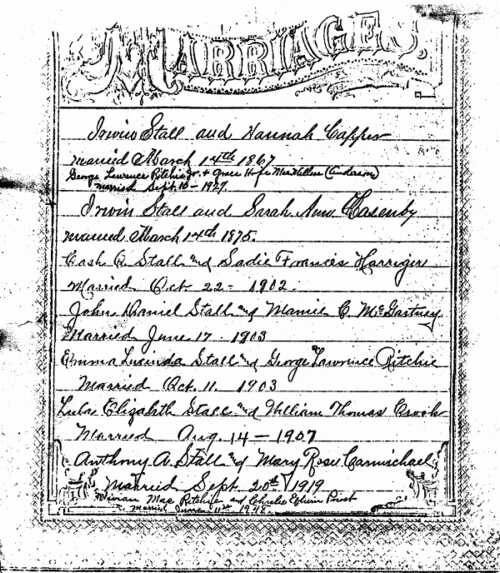 MARRIAGES,
Irwin Stall and Hannah Capper
married March 14th 1867
George Lawrence Ritchie Jr. + Grace Hope MacMillen (Anderson)
Married Sept. 10 - 1927.
Irwin Stall and Sarah Ann Hasenby
married March 14th 1875.
Cash A Stall and Sadie Frances Harriger
Married Oct 22 - 1902.
John Daniel Stall and Mamie C. McGartney
Married June 17 - 1903
Emma Lucinda Stall and George Lawrence Ritchie
Married Oct. 11. 1903
Lula Elizabeth Stall and William Thomas Crook
Married Aug. 14 - 1907
Anthony A. Stall and Mary Rose Carmischael
Married Sept 20th 1919
Vivian Mae Ritchie and Charles Edwin
Married June 11th 1948.